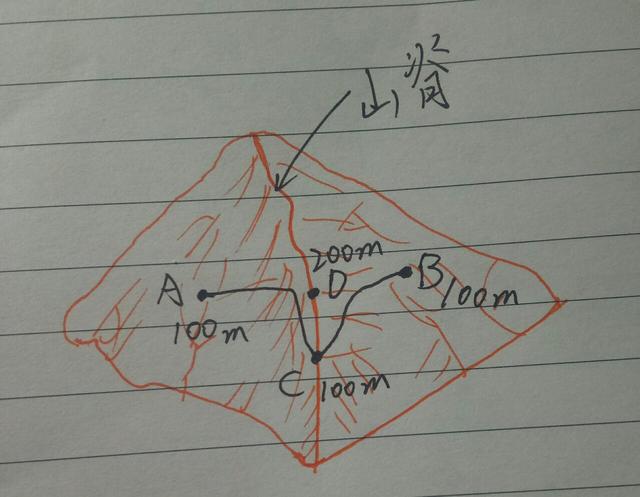 山脊
200m
A
D
B
100m
100m
C
100m